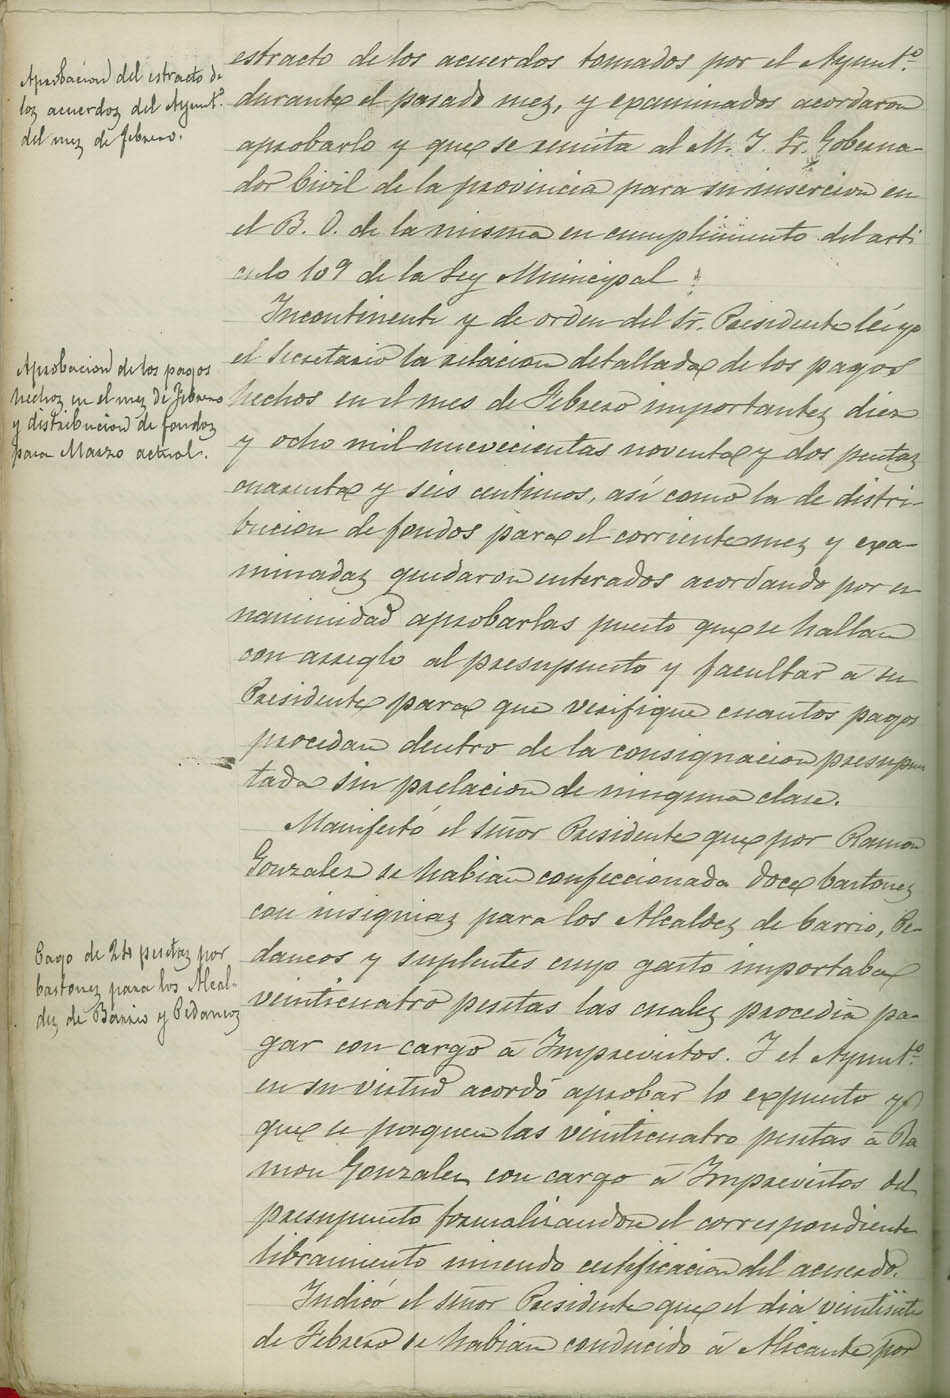 Aprobacion del estracto de
los acuerdos del Ayunt.º
del mez de febrero.
estracto de los acuerdos tomados por el Ayunt.º
durante el pasado mez, y examinados acordaron
aprobarlo y que se remita al M. I. Sr. Goberna-
dor Civil de la provincia para su insercion en
el B. O. de la misma en cumplimiento del arti
culo 109 de la Ley Municipal
Aprobacion de los pagos
hechos en el mez de Febrero
y distribucion de fondos
para Marzo actual.
Incontinente y de orden del Sr. Presidente léi yo
el Secretario la relacion detallada de los pagos
hechos en el mes de Febrero importantes diez
y ocho mil nuevecientas noventa y dos pesetas
cuarenta y seis centimos, así como la de distri-
bucion de fondos para el corriente mez y exa-
minadaz quedaron enterados acordando por u-
nanimidad aprobarlas puesto que se hallan
con arreglo al presupuesto y facultar á su
Presidente para que verifique cuantos pagos
procedan dentro de la consignacion presupues
tada sin prelacion de ninguna clase.
Manifestó el señor Presidente que por Ramon
Gonzalez se habian confeccionada doce bastonez
con insigniaz para los Alcaldez de barrio, Pe-
Pago de 24 pesetaz por
bastonez para los Alcal-
dez de Barrio y Pedaneoz
daneos y suplentes cuyo gasto importaba
veinticuatro pesetas las cualez procedia pa-
gar con cargo á Imprevistos. Y el Ayunt.º
en su virtud acordó aprobar lo expuesto y
que se paguen las veinticuatro pesetas á Ra
mon Gonzalez con cargo á Imprevistos del
presupuesto formalizandose el correspondiente
libramiento uniendo certificacion del acuerdo.
Indicó el señor Presidente que el dia veintisiete
de Febrero se habian conducido á Alicante por